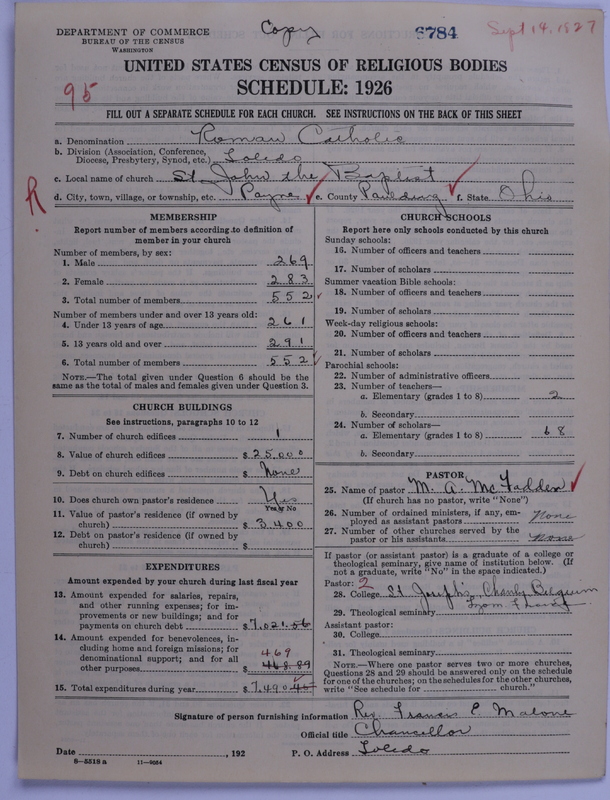 DEPARTMENT OF COMMERCE
BUREAU OF THE CENSUS
WASHINGTON
Copy
6784
Sept 14, 1927
UNITED STATES CENSUS OF RELIGIOUS BODIES
SCHEDULE: 1926
95
FILL OUT A SEPARATE SCHEDULE FOR EACH CHURCH. SEE INSTRUCTIONS ON THE BACK OF THIS SHEET
a. Denomination Roman Catholic
b. Division (Association, Conference,
Diocese, Presbytery, Synod, etc.) Toledo
c. Local name of church St John the Baptist
R
d. City, town, village, or township, etc. Payne e. County Paulding f. State Ohio
MEMBERSHIP
Report number of members according to definition of
member in your church
Number of members, by sex:
1. Male 269
2. Female 283
3. Total number of members 552
Number of members under and over 13 years old:
4. Under 13 years of age 261
5. 13 years old and over 291
6. Total number of members 552
NOTE.—The total given under Question 6 should be the
same as the total of males and females given under Question 3.
CHURCH BUILDINGS
See instructions, paragraphs 10 to 12
7. Number of church edifices 1
8. Value of church edifices $25000
9. Debt on church edifices $None
10. Does church own pastor's residence Yes
Yes or No
11. Value of pastor's residence (if owned by
church) $3400
12. Debt on pastor's residence (if owned by
church) $
EXPENDITURES
Amount expended by your church during last fiscal year
13. Amount expended for salaries, repairs,
and other running expenses; for im-
provements or new buildings; and for
payments on church debt $7,021.56
14. Amount expended for benevolences, in-
cluding home and foreign missions; for
denominational support; and for all 469
other purposes $468.89
15. Total expenditures during year $7,490.45
CHURCH SCHOOLS
Report here only schools conducted by this church
Sunday schools:
16. Number of officers and teachers
17. Number of scholars
Summer vacation Bible schools:
18. Number of officers and teachers
19. Number of scholars
Week-day religious schools:
20. Number of officers and teachers
21. Number of scholars
Parochial schools:
22. Number of administrative officers
23. Number of teachers—
a. Elementary (grades 1 to 8) 2
b. Secondary
24. Number of scholars—
a. Elementary (grades 1 to 8) 68
b. Secondary
PASTOR
25. Name of pastor M. A. McFadden
(If church has no pastor, write "None")
26. Number of ordained ministers, if any, em-
ployed as assistant pastors None
27. Number of other churches served by the
pastor or his assistants None
If pastor (or assistant pastor) is a graduate of a college or
theological seminary, give name of institution below. (If
not a graduate, write "No" in the space indicated.)
Pastor: 2
28. College St. Joseph's, Belgium
29. Theological seminary
Assistant pastor:
30. College
31. Theological seminary
NOTE.—Where one pastor serves two or more churches,
Questions 28 and 29 should be answered only on the schedule
for one of the churches; on the schedules for the other churches,
write "See schedule for church."
Signature of person furnishing information Rev. Francis E. Malone
Official title Chancellor
Date , 192 P. O. Address Toledo
8—5518 a 11—9064